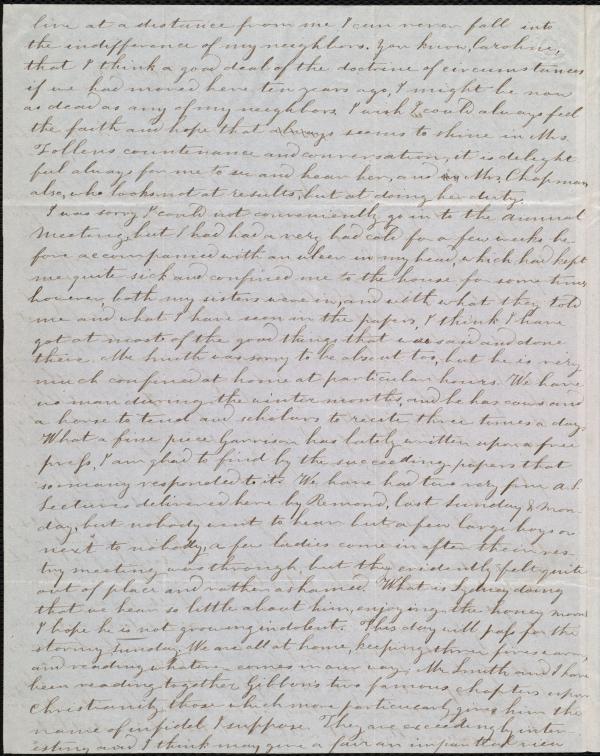 live at a distance from me I can never fall into
the indifference of my neighbors. You know, Caroline,
that I think a good deal of the doctrine of circumstances
if we had moved here ten years ago, I might be now
as dead as any of my neighbors. I wish I could always feel
the faith and hope that always seems to shine in Mrs.
Follens countenance and conversation, it is delight
ful always for me to see and hear her, and Mrs. Chapman
also, who looks not at results, but at doing her duty.
I was sorry I could not conveniently go in to the Annual
Meeting, but I had had a very bad cold for a few weeks be-
fore accompanied with an ulcer in my head, which had kept
me quite sick and confined me to the house for some time,
however both my sisters were in, and with what they told
me and what I have seen in the papers, I think I have
got at most of the good things that was said and done
there. Mr Smith was sorry to be absent too, but he is very
much confined at home at particular hours. We have
no man during the winter months, and he has cows and
a horse to tend and scholars to recite three times a day.
What a fine piece Garrison has lately written upon a free
press, I am glad to find by the succeeding papers that
so many responded to it. We have had two very fine A.S.
Lectures delivered here by Remond, last Sunday & Mon-
day, but nobody went to hear but a few large boys or
next to nobody, a few ladies come in after their ves-
try meeting was through, but they evidently felt quite
out of place and rather ashamed. What is Sydney doing
that we hear so little about him, enjoying the honey moon
I hope he is not growing indolent. This day will pass for the
stormy Sunday. We are all at home, keeping three fires and
and reading whatever comes in our way; Mr Smith and I have
been reading together Gibbon's two famous chapters upon
Christianity those which more particularly gives him the
name of infidel, I suppose. They are exceedingly inter-
esting and I think may give a fair an impartial view